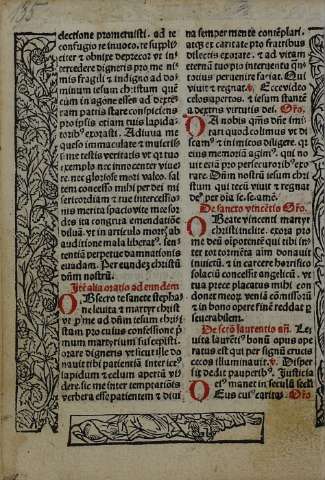 135
electione promeruisti. ad te
confugio te inuoco, te suppli
citer & obnixe deprecor vt in
tercedere digneris pro me ni
mis fragili & indigno ad do
minum iesum christum quē
cum in agone esses ad dexte
ram patris stare conspiciens
pro ipsis etiam tuis lapida
toribꝰ exorasti. Adiuua me
queso immaculate & muicriss
me testis veritatis vt qui tuo
exemplo nec innocenter viue
re. nec gloriose mori valeo. sal
tem concesso mihi per dei mi
sericordiam & tue intercessio
nis merita spacio vite mee sor
des ita congrua emendatiōe
diluā. vt in articulo mortꝭ ab
auditione mala liberatꝰ. sen
tentiā perpetue damnatiōis
euadam. Per eundez christū
dūm nostrū.
Itē alia oratio ad eundem
Obsecro te sancte stepha
ne leuita & martyr christi
vt ꝑ me ad dn̄m iesum chri
stum pro cuius confessione ꝑ
nuum martyrium suscepisti.
orare digneris vt sicut ille do
nauit tibi patientiā inter ictꝰ
lapidum & celum apertū vi
dere. sic me inter temptatiōis
verbera esse patientem & diui
na semper mente contēplari.
atqꝫ ex caritate pro fratribus
dilectis exorare. & ad vitam
eternā tuo pio interuentu qn̄
totius peruenire faciat. Qui
viuit & regnat. v. Ecce video
celos apertos. & iesum stantē
a dextris virtutis dei. Oro.
Da nobis qm̄s dn̄e imi
tari quod colimus vt di
scam' & inimicos diligere. qꝛ
eius memoriā agimꝰ. qui no
uit etiā pro persecutoribꝰ exo
rare. Dūm nostrū iesum chri
stum qui tecū viuit & regnat
deꝰ per oīa sc. sc. amē.
De sancto vincētio Oro.
O Beate vincenti martyr
christi inclite. exora pro
me deū oīpotentē qui tibi in
ter tormēta aim donauit
inuictū. & in carcere horrifico
solaciū concessit angelicū. vt
tua prece placatus mihi con
donet meorꝫ veniā cōmissorū
& in bono opere finē reddat p
seuerabilem.
De scto laurentio añ. Le
uita laurētiꝰ bonū opus ope
ratus est qui per signū crucis
cecos illuminauit. v. Disper
sit dedit pauperibꝰ. Iusticia
eiꝰ manet in seculū seculi
Deus cuiꝰ caritas. Oro